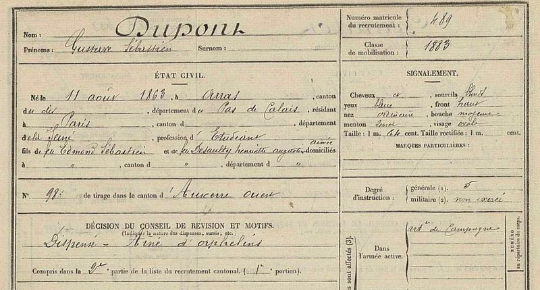 Nom : Dupont
Prénoms : Gustave Sébastien Surnom :
Numéro matricule
du recrutement : 489
Classe
de mobilisation : 1883
ÉTAT CIVIL.
Né le 11 août 1863, à Arras, canton
du dit, département du Pas de Calais, résidant
à Paris, canton d , département
d la Seine, profession d'Étudiant
fils de feu Edmond Sébastien et de feu Desaulty Henriette domiciliés
à " , canton d " , département d "
N° 98 de tirage dans le canton d'Auxerre ouest
SIGNALEMENT.
Cheveux et sourcils
yeux bleus, front haut
nez ordinaire, bouche moyenne
menton rond, visage ovale
Taille : 1 m. 64 cent. Taille rectifiée : 1 m. cent.
MARQUES PARTICULIÈRES :
Degré
d'instruction :
générale (1). 5
militaire (2). non exercé
DÉCISION DU CONSEIL DE RÉVISION ET MOTIFS.
(Indiquer la nature des dispenses, sursis, etc.
Dispensé - Aîné d'orphelins
Compris dans la 2e partie de la liste du recrutement cantonal ( portion).
Dans
l'armée active.
de Campagne
NUMÉRO